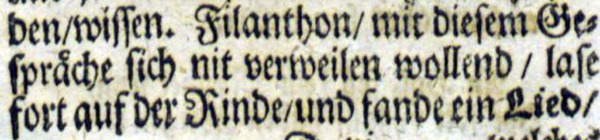 den/wiſſen. Filanthon/ mit dieſem Ge⸗
ſpraͤche ſich nit verweilen wollend / laſe
fort auf der Rinde/und fande ein Lied/